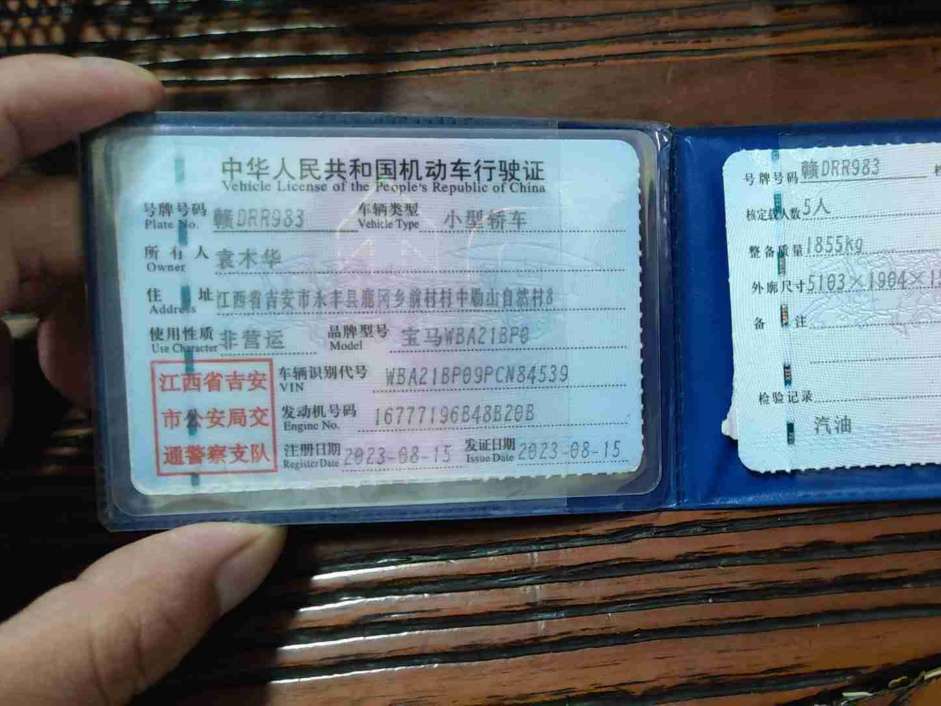 中华人民共和国机动车行驶证
Vehicle License of the People's Republic of China
号牌号码 赣DRR983 车辆类型 小型轿车
Plate No. Vehicle Type
所有人 袁木华
Owner
住址 江西省吉安市永丰县鹿冈乡前村村中勘山自然村8
Address
使用性质 非营运 品牌型号 宝马WBA21BP0
Use Character Model
车辆识别代号 WBA21BP09PCN84539
VIN
发动机号码 16777196B48B20B
Engine No.
注册日期 2023-08-15 发证日期 2023-08-15
Register Date Issue Date
江西省吉安
市公安局交
通警察支队
号牌号码 赣DRR983
核定载人数 5人
整备质量 1855kg
外廓尺寸 5103×1904×1
备注
检验记录
汽油